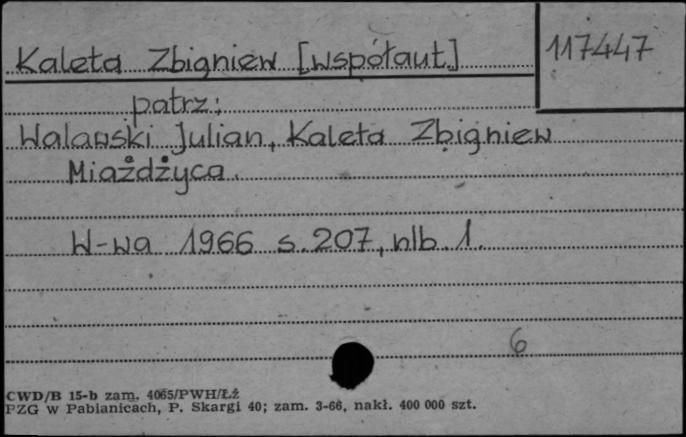 Kaleta Zbigniew [współaut.]
117447
patrz:
Walawski Julian, Kaleta Zbigniew
Miażdżyca.
W-wa 1966 s. 207, nlb. 1.
6
CWD/B 15-b zam. 4065/PWH/ŁŹ
PZG w Pabianicach, P. Skargi 40; zam. 3-66, nakł. 400 000 szt.